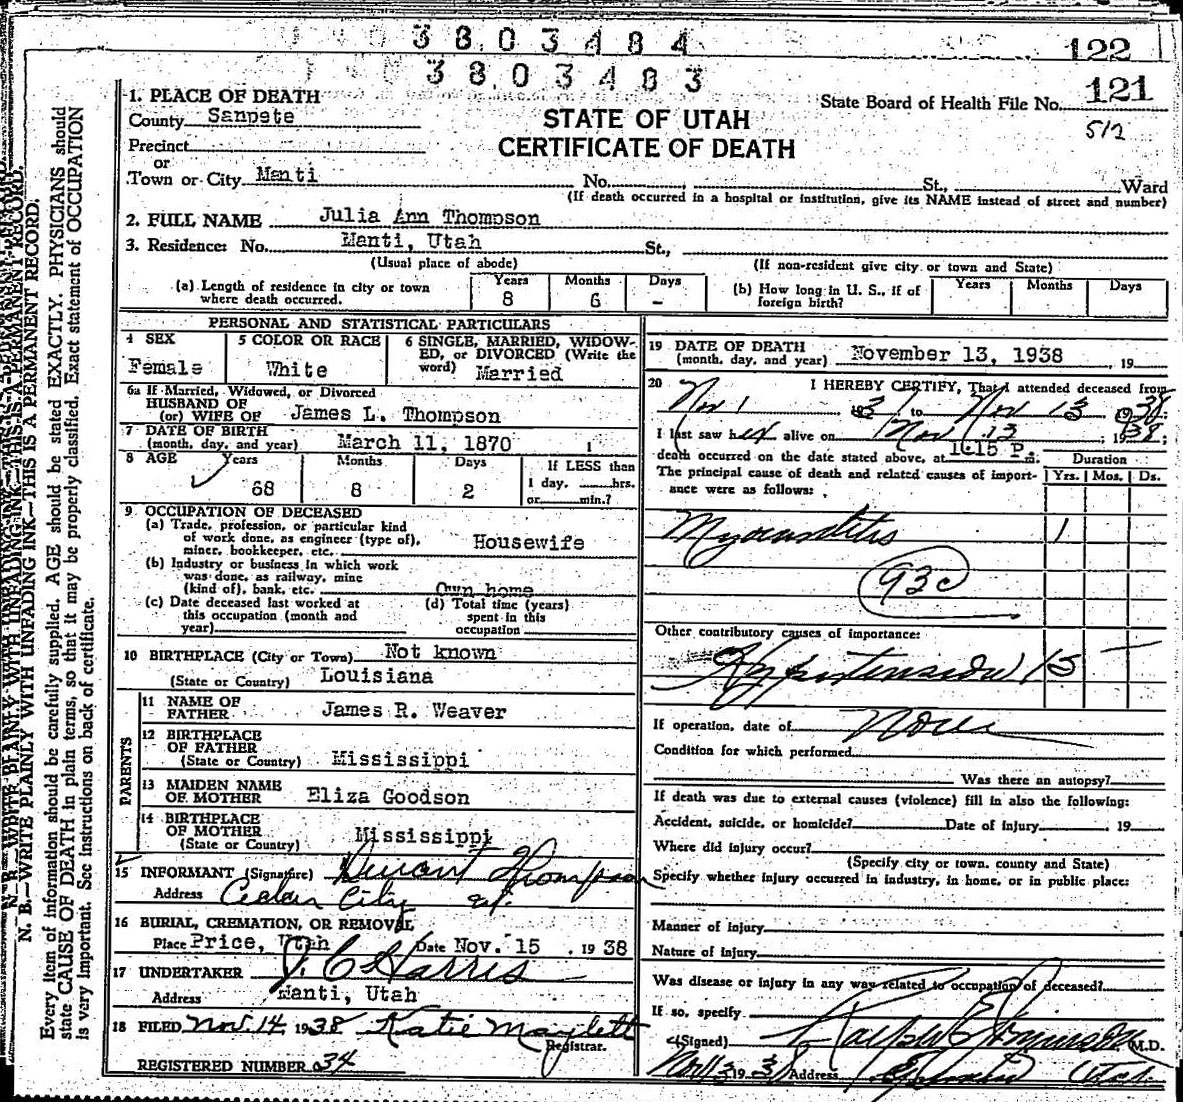 3803484
122
3803483
121
State Board of Health File No.
512
1. PLACE OF DEATH
County Sanpete
STATE OF UTAH
CERTIFICATE OF DEATH
Precinct
or
Town or City Manti No. St., Ward
(If death occurred in a hospital or institution, give its NAME instead of street and number)
2. FULL NAME Julia Ann Thompson
3. Residence: No. Manti, Utah St.,
(Usual place of abode) (If non-resident give city or town and State)
(a) Length of residence in city or town where death occurred. Years 8 Months 6 Days -
(b) How long in U. S., if of foreign birth? Years Months Days
PERSONAL AND STATISTICAL PARTICULARS
4 SEX Female
5 COLOR OR RACE White
6 SINGLE, MARRIED, WIDOWED, or DIVORCED (Write the word) Married
6a If Married, Widowed, or Divorced
HUSBAND OF
(or) WIFE OF James L. Thompson
7 DATE OF BIRTH
(month, day, and year) March 11, 1870
8 AGE Years 68 Months 8 Days 2
If LESS than
1 day, hrs.
or min.?
9 OCCUPATION OF DECEASED
(a) Trade, profession, or particular kind
of work done, as engineer (type of),
miner, bookkeeper, etc. Housewife
(b) Industry or business in which work
was done, as railway, mine
(kind of), bank, etc. Own home
(c) Date deceased last worked at
this occupation (month and
year)
(d) Total time (years)
spent in this
occupation
10 BIRTHPLACE (City or Town) Not known
(State or Country) Louisiana
PARENTS
11 NAME OF
FATHER James R. Weaver
12 BIRTHPLACE
OF FATHER
(State or Country) Mississippi
13 MAIDEN NAME
OF MOTHER Eliza Goodson
14 BIRTHPLACE
OF MOTHER
(State or Country) Mississippi
15 INFORMANT (Signature) Thompson
Address Cedar City ut.
16 BURIAL, CREMATION, OR REMOVAL
Place Price, Utah Date Nov. 15, 1938
17 UNDERTAKER J. C. Harris
Address Manti, Utah
18 FILED Nov. 14 1938 Katie Maylett
Registrar.
REGISTERED NUMBER 34
19 DATE OF DEATH
(month, day, and year) November 13, 1938, 19
20 I HEREBY CERTIFY, That I attended deceased from
Nov 1 to Nov 13 1938;
I last saw her alive on Nov 13, 1938;
death occurred on the date stated above, at P.m.
The principal cause of death and related causes of importance were as follows:
Duration
Yrs. Mos. Ds.
Myocarditis 1
93c
Other contributory causes of importance:
Hypertension 15 -
If operation, date of None
Condition for which performed
Was there an autopsy?
If death was due to external causes (violence) fill in also the following:
Accident, suicide, or homicide? Date of injury , 19
Where did injury occur?
(Specify city or town, county and State)
Specify whether injury occurred in industry, in home, or in public place:
Manner of injury
Nature of injury
Was disease or injury in any way related to occupation of deceased?
If so, specify
(Signed) Ralph M.D.
19 38 Address Ephraim Utah
N. B.—WRITE PLAINLY WITH UNFADING INK—THIS IS A PERMANENT RECORD.
Every item of information should be carefully supplied. AGE should be stated EXACTLY. PHYSICIANS should
state CAUSE OF DEATH in plain terms, so that it may be properly classified. Exact statement of OCCUPATION
is very important. See instructions on back of certificate.